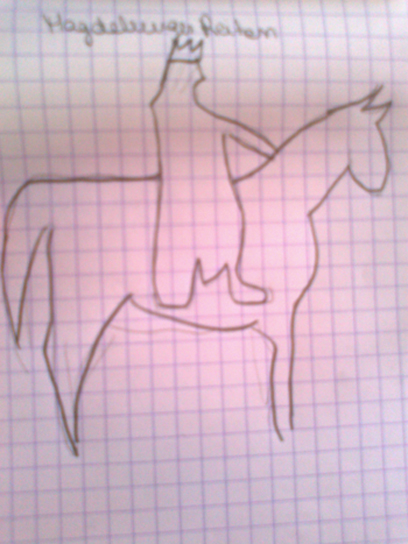 Magdeburger Reiter